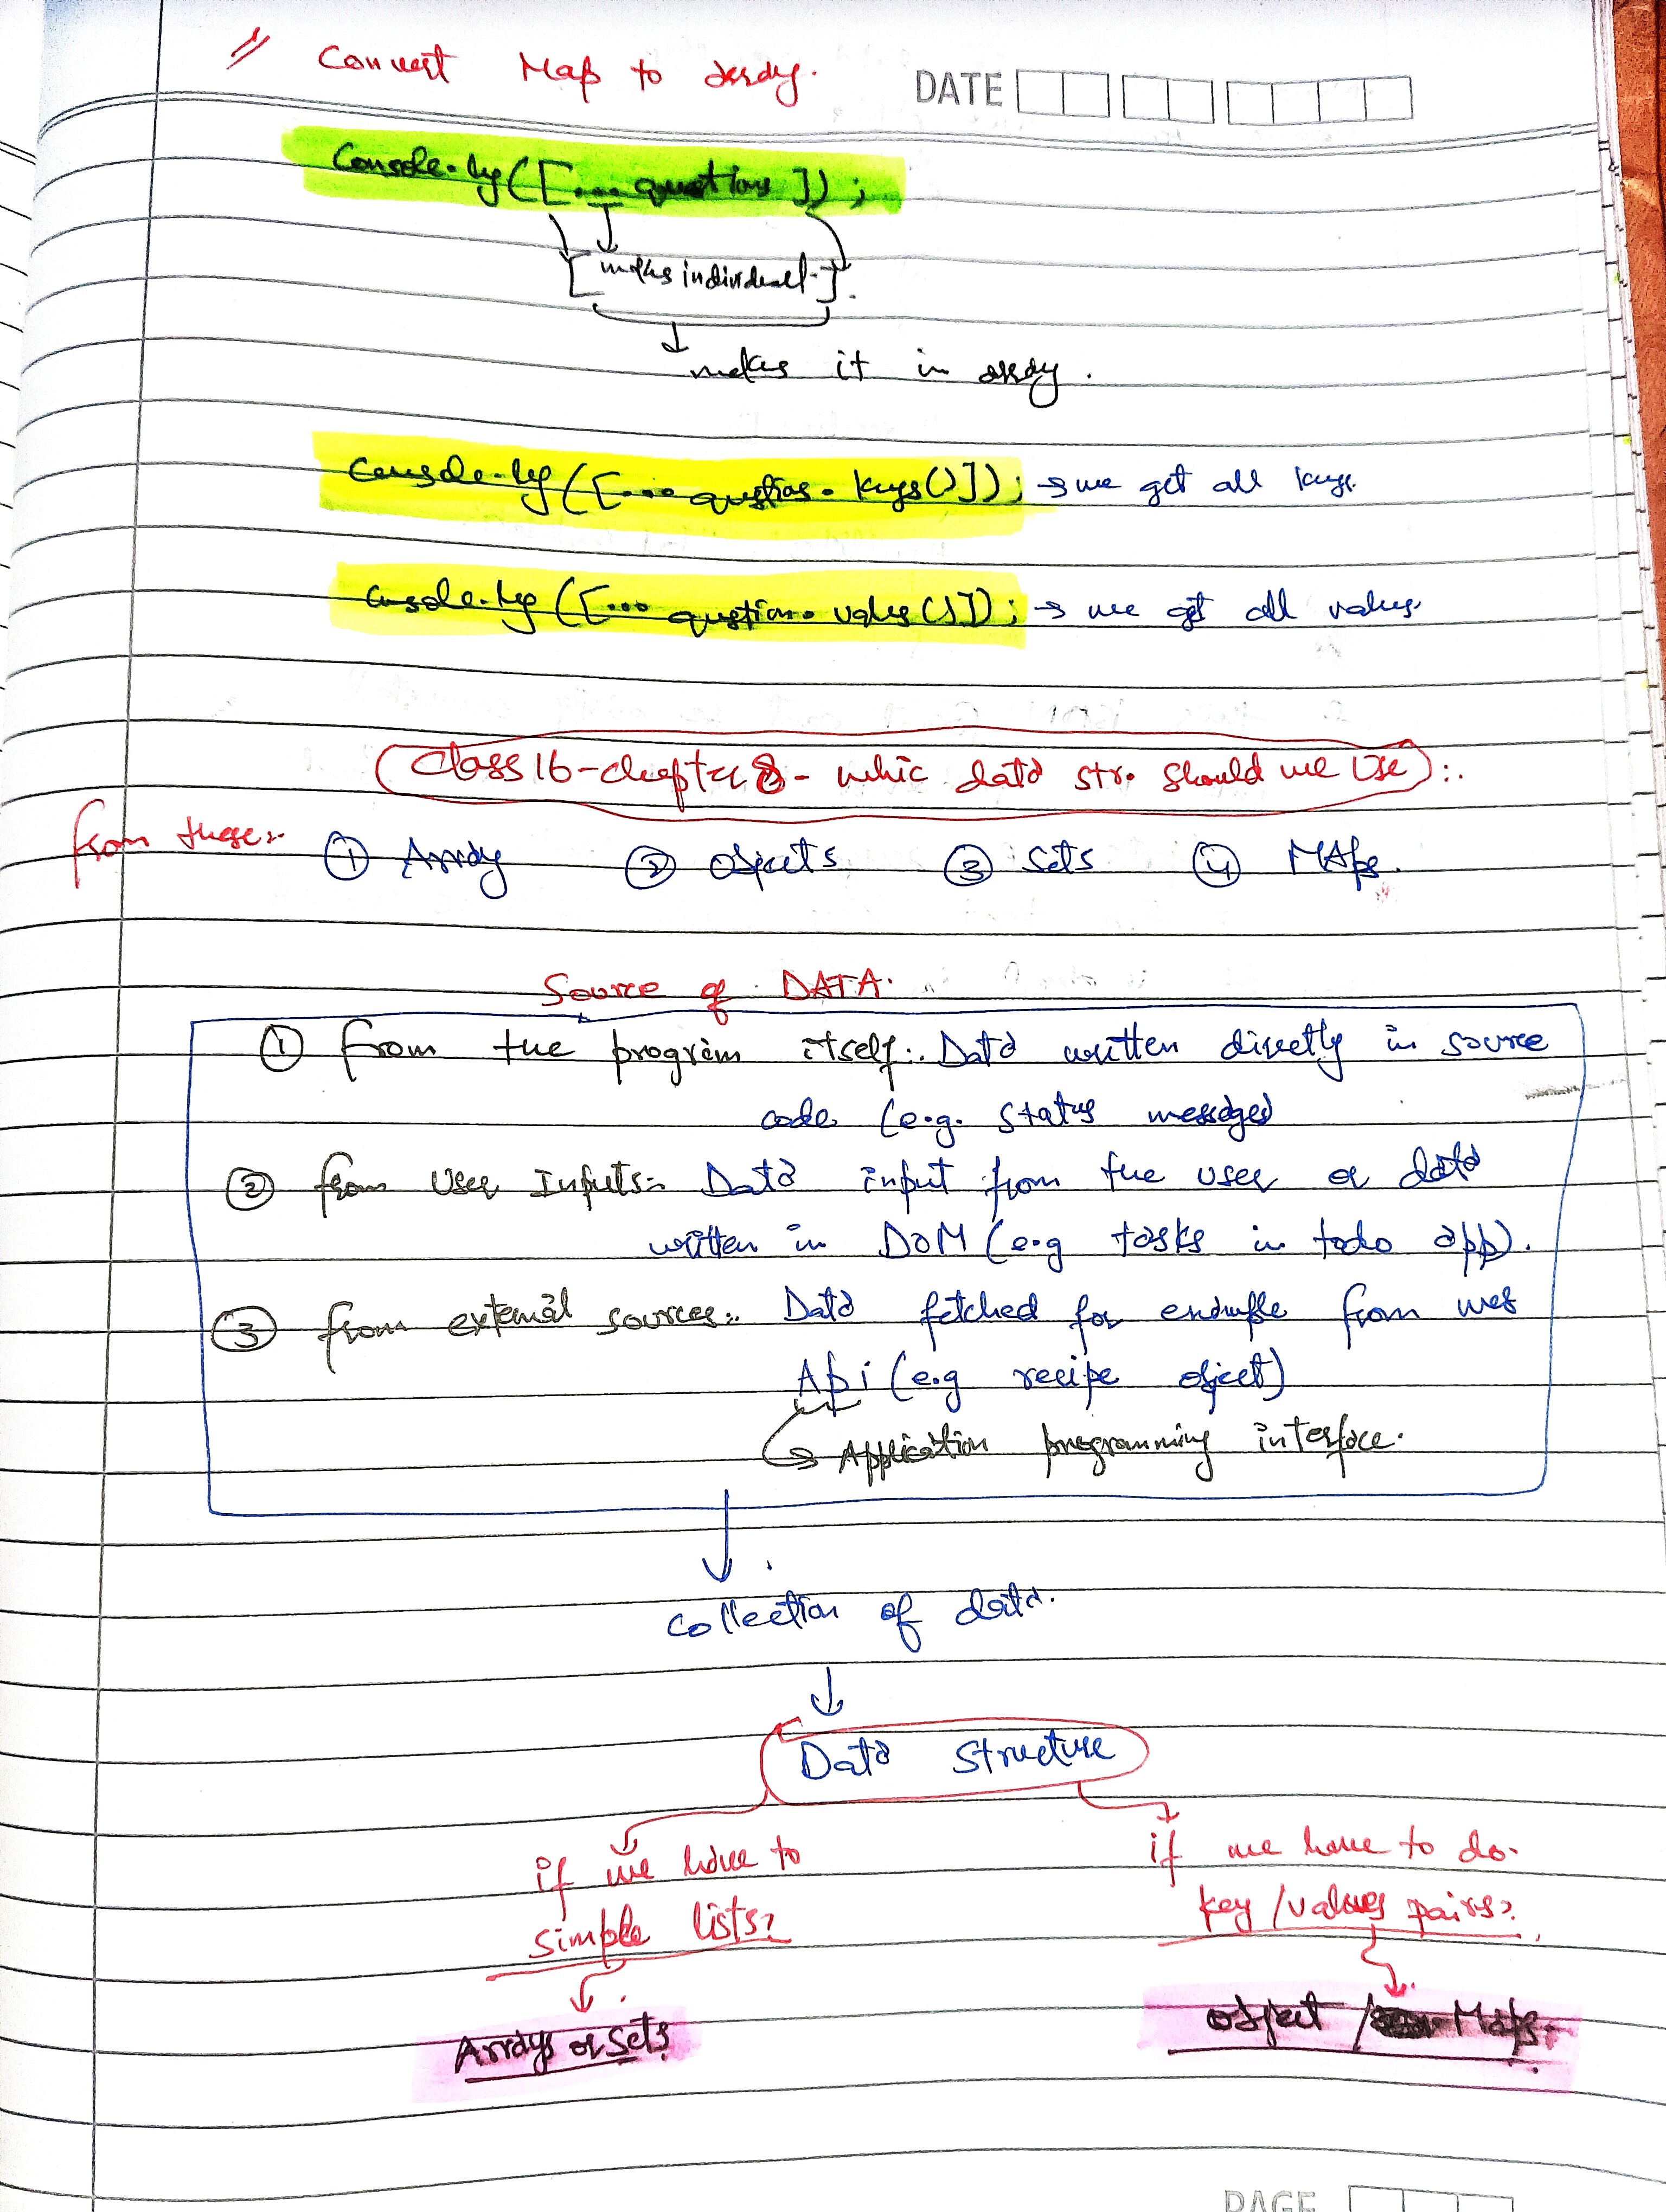 // Convert Map to Array.
DATE
Console.log([... questions ]);
[ makes individual. ].
makes it in array.
Console.log([... question. keys()]); → we get all keys.
Console.log([... question. values()]); → we get all values.
Class 16 - chapter 8 - whic data str. should we Use :.
from these:-
① Array ② Objects ③ Sets ④ MAps.
Source of DATA.
① from the program itself:. Data written directly in source
code (e.g. status messages)
② from User Inputs:- Data input from the user or data
written in DOM (e.g tasks in todo app).
③ from external sources:. Data fetched for example from web
Api (e.g recipe object)
→ Application programming interface.
collection of data.
Data Structure
if we have to
simple lists?
if we have to do.
key/values pairs?
Arrays or Sets
object / Maps.
PAGE